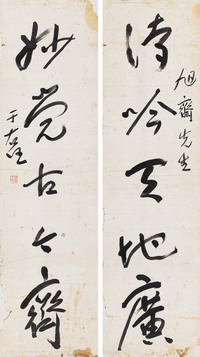 旭齋先生
詩吟天地廣
妙覺古今齊
于右任